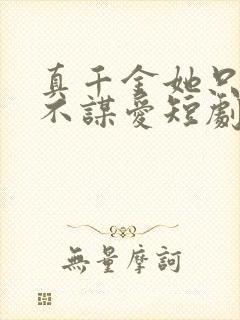 真千金她只
不謀愛短劇
無量摩訶